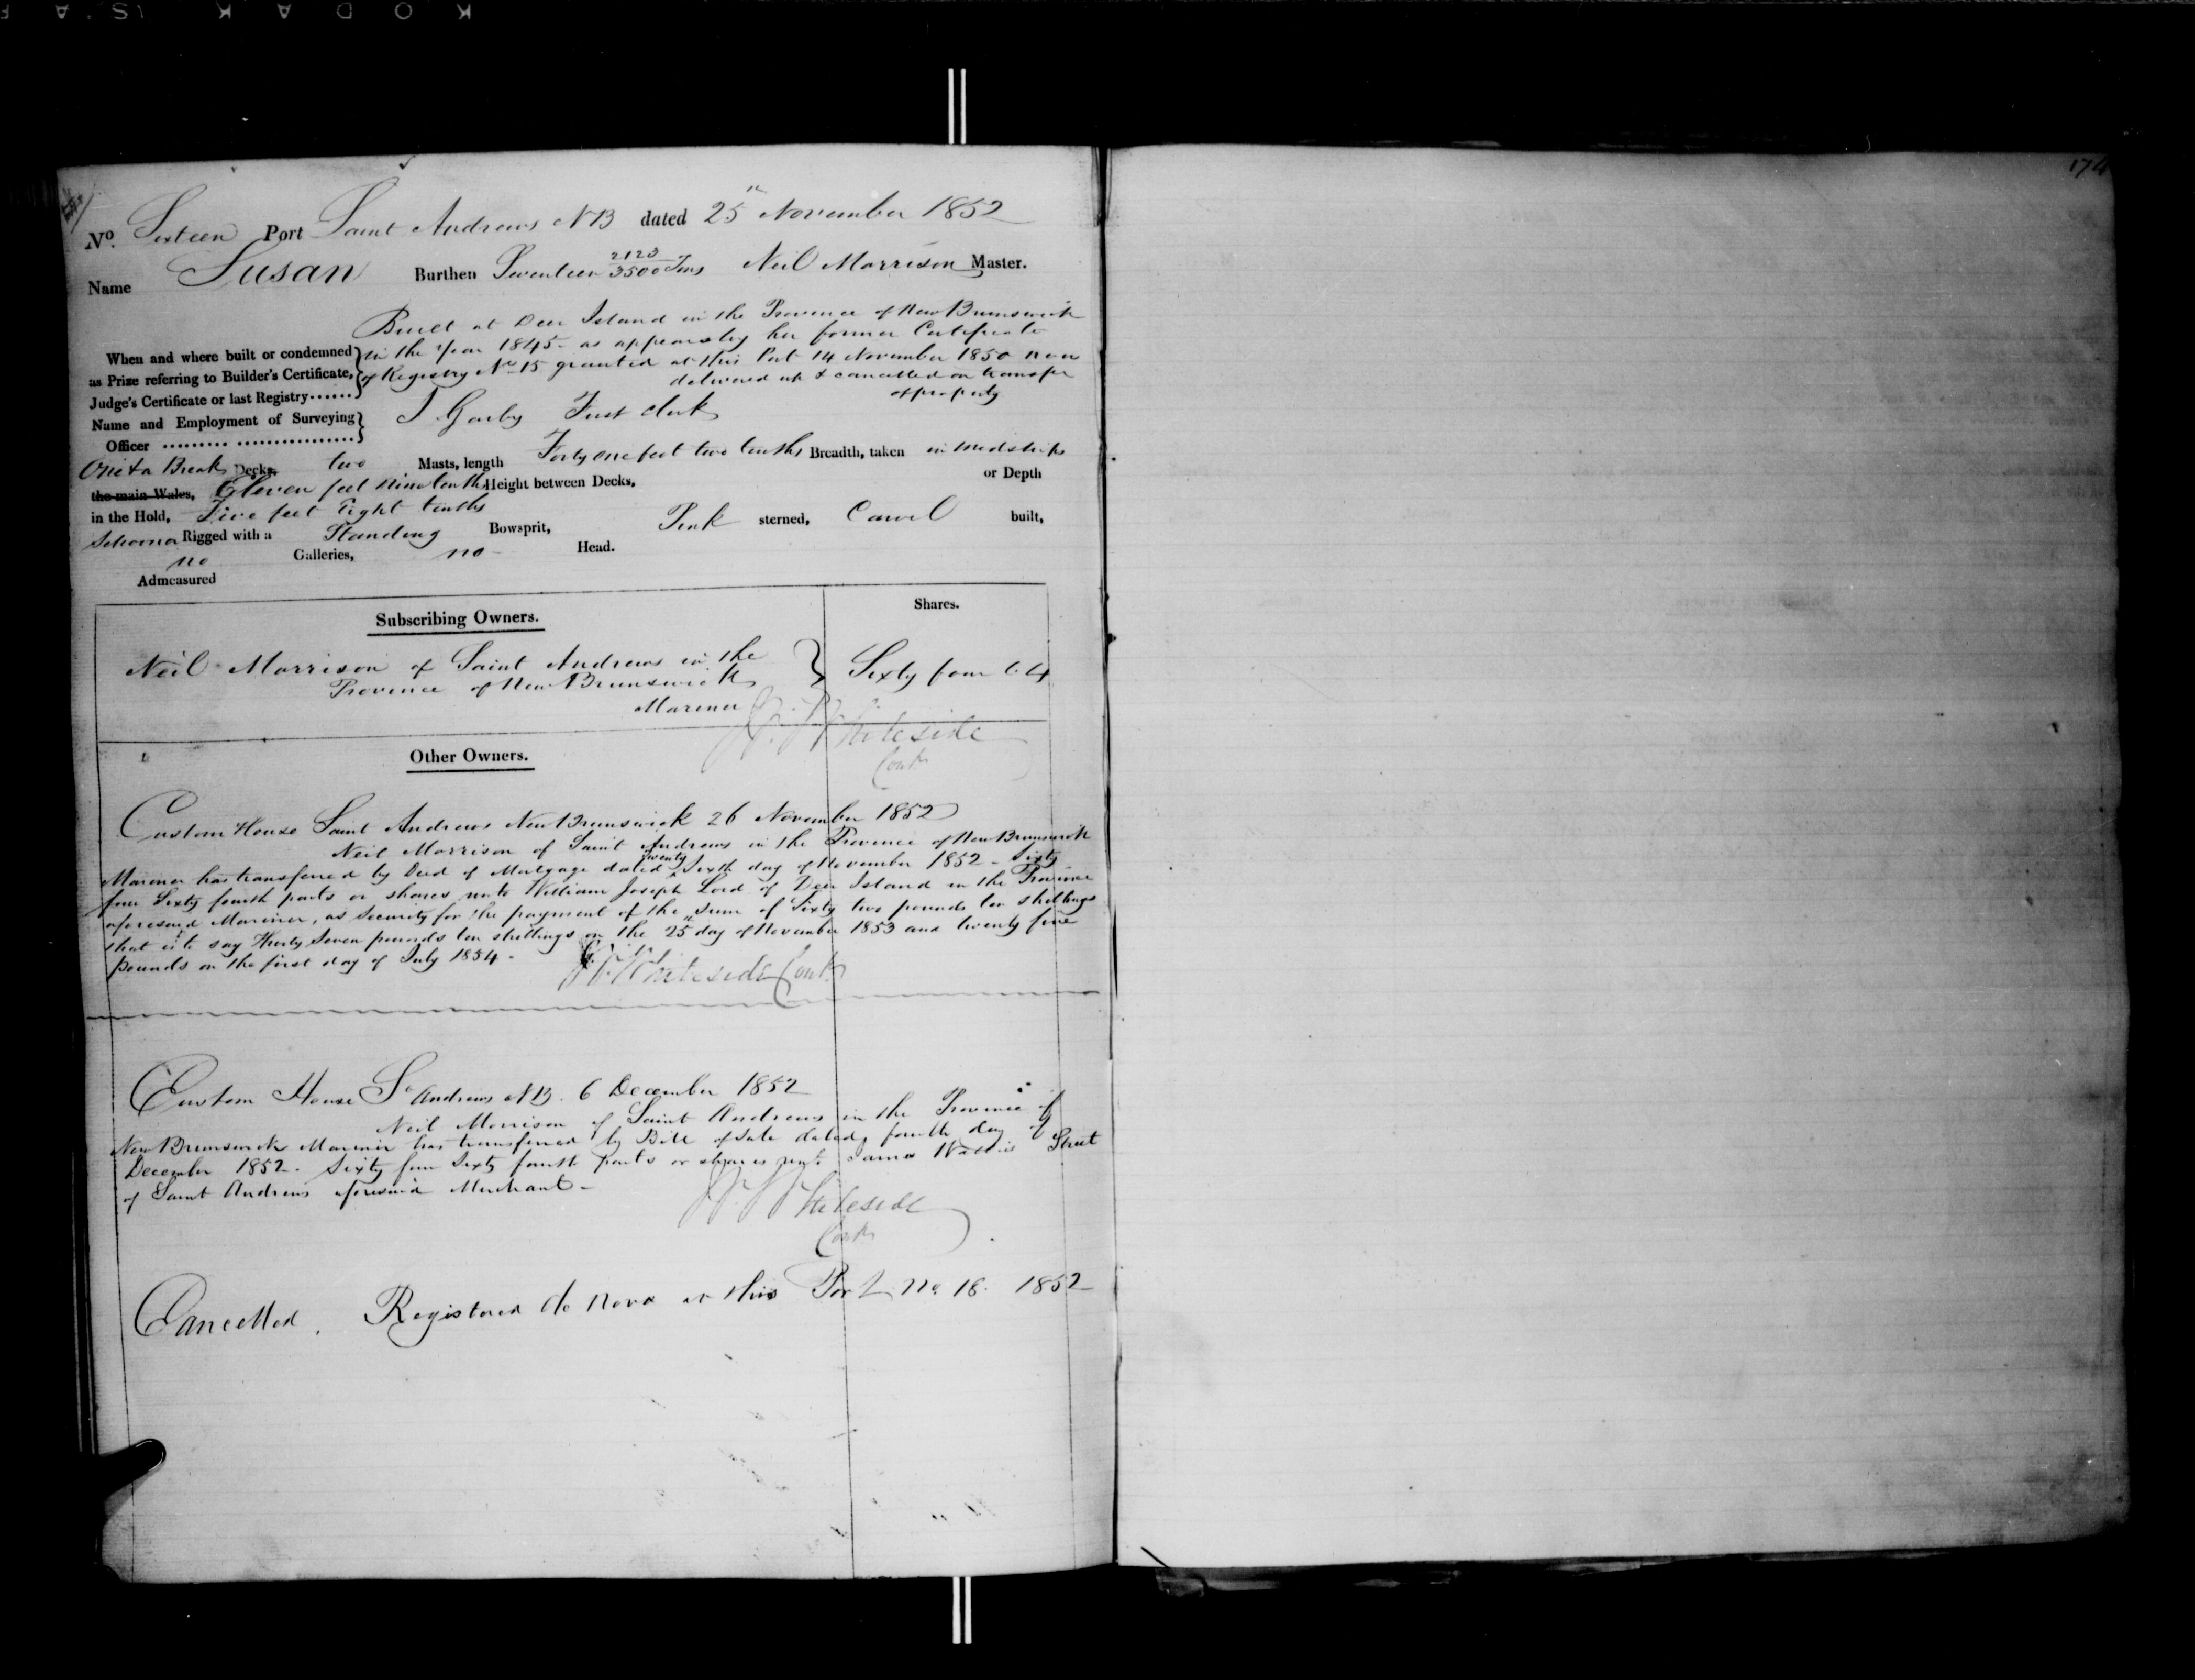 KODAK
174
No. Sixteen Port Saint Andrews NB dated 25th November 1852
Name Susan Burthen Seventeen 2123/3500 Tons Neil Morrison Master.
Built at Deer Island in the Province of New Brunswick
When and where built or condemned in the Year 1845 as appears by her former Certificate
as Prize referring to Builder's Certificate, of Registry No 15 granted at this Port 14 November 1850 now
Judge's Certificate or last Registry...... delivered up & cancelled on transfer
of property
Name and Employment of Surveying
Officer First Clerk
One & a Break Decks, two Masts, length Forty one feet two tenths Breadth, taken in midships
the main Wales, Eleven feet nine tenths Height between Decks, or Depth
in the Hold, Five feet Eight tenths
Schooner Rigged with a Standing Bowsprit, Pink sterned, Carvel built,
no Galleries, no Head.
Admeasured
Subscribing Owners. Shares.
Neil Morrison of Saint Andrews in the
Province of New Brunswick Sixty four 64
Mariner
Whiteside
Contr
Other Owners.
Custom House Saint Andrews New Brunswick 26 November 1852
Neil Morrison of Saint Andrews in the Province of New Brunswick
Mariner has transferred by Deed of Mortgage dated twenty Sixth day of November 1852 - Sixty
four Sixty fourth parts or shares unto William Joseph Lord of Deer Island in the Province
aforesaid Mariner, as Security for the payment of the Sum of Sixty two pounds ten shillings
that is to say Thirty Seven pounds ten shillings on the 25th day of November 1853 and twenty five
pounds on the first day of July 1854 -
Whiteside Contr
Custom House St Andrews NB. 6 December 1852
Neil Morrison of Saint Andrews in the Province of
New Brunswick Mariner has transferred by Bill of Sale dated fourth day of
December 1852. Sixty four Sixty fourth parts or shares unto James Street
of Saint Andrews aforesaid Merchant -
Whiteside
Contr
Cancelled. Registered de Novo at this Port No. 18. 1852